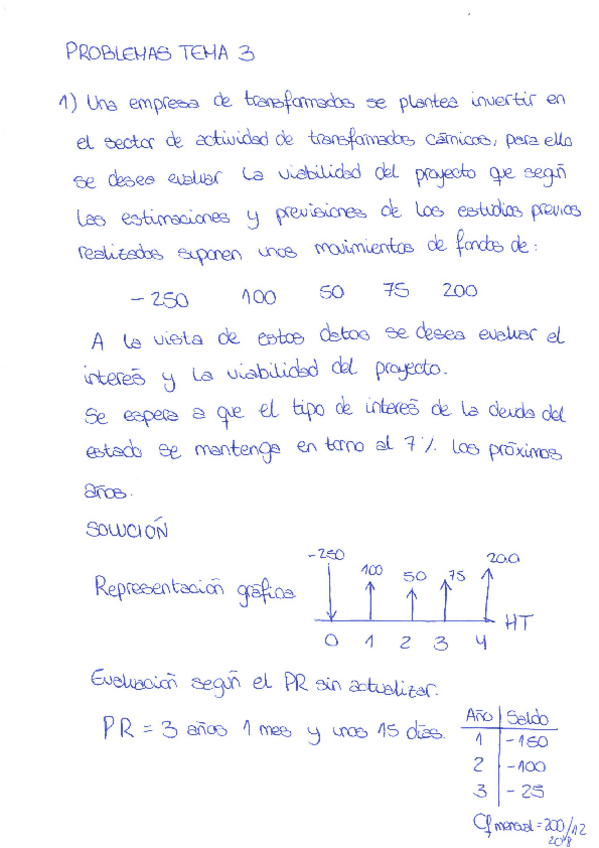 PROBLEMAS TEMA 3
1) Una empresa de transformados se plantea invertir en
el sector de actividad de transformados cárnicos, para ello
se desea evaluar la viabilidad del proyecto que según
las estimaciones y previsiones de los estudios previos
realizados suponen unos movimientos de fondos de:
-250 100 50 75 200
A la vista de estos datos se desea evaluar el
interés y la viabilidad del proyecto.
Se espera a que el tipo de interés de la deuda del
estado se mantenga en torno al 7% los próximos
años.
SOLUCIÓN
Representación gráfica
-250 100 50 75 200
HT
0 1 2 3 4
Evaluación según el PR sin actualizar.
PR = 3 años 1 mes y unos 15 días.
Año Saldo
1 -150
2 -100
3 -25
Cf mensual = 200/12